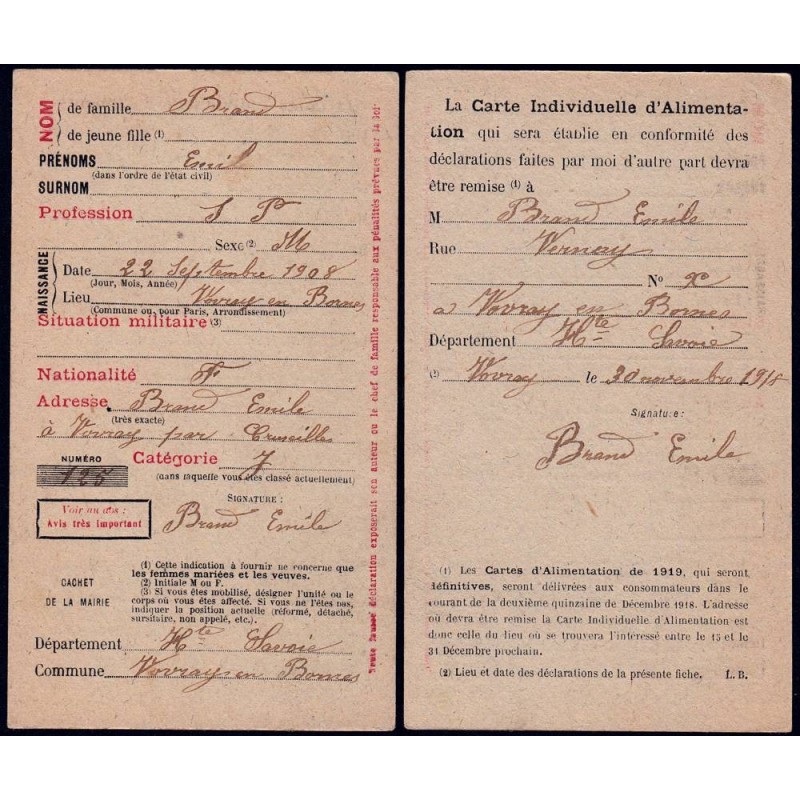 NOM
de famille Brand
de jeune fille (1)
PRÉNOMS Emil
(dans l'ordre de l'état civil)
SURNOM
Profession S P
Sexe (2) M
NAISSANCE
Date 22 Septembre 1908
(Jour, Mois, Année)
Lieu Vovray en Bornes
(Commune ou, pour Paris, Arrondissement)
Situation militaire (3)
Nationalité F
Adresse Brand Emile
(très exacte)
à Vovray par Cruseilles
NUMÉRO
125
Catégorie J
(dans laquelle vous êtes classé actuellement)
Voir au dos :
Avis très important
SIGNATURE :
Brand Emile
CACHET
DE LA MAIRIE
(1) Cette indication à fournir ne concerne que
les femmes mariées et les veuves.
(2) Initiale M ou F.
(3) Si vous êtes mobilisé, désigner l'unité ou le
corps où vous êtes affecté. Si vous ne l'êtes pas,
indiquer la position actuelle (réformé, détaché,
sursitaire, non appelé, etc.).
Département Hte Savoie
Commune Vovray en Bornes
Toute fausse déclaration exposerait son auteur ou le chef de famille responsable aux pénalités prévues par la loi
La Carte Individuelle d'Alimenta-
tion qui sera établie en conformité des
déclarations faites par moi d'autre part devra
être remise (1) à
M Brand Emile
Rue Vernay
No
à Vovray en Bornes
Département Hte Savoie
(2) Vovray le 30 novembre 1918
Signature :
Brand Emile
(1) Les Cartes d'Alimentation de 1919, qui seront
définitives, seront délivrées aux consommateurs dans le
courant de la deuxième quinzaine de Décembre 1918. L'adresse
où devra être remise la Carte Individuelle d'Alimentation est
donc celle du lieu où se trouvera l'intéressé entre le 15 et le
31 Décembre prochain.
(2) Lieu et date des déclarations de la présente fiche. L. B.